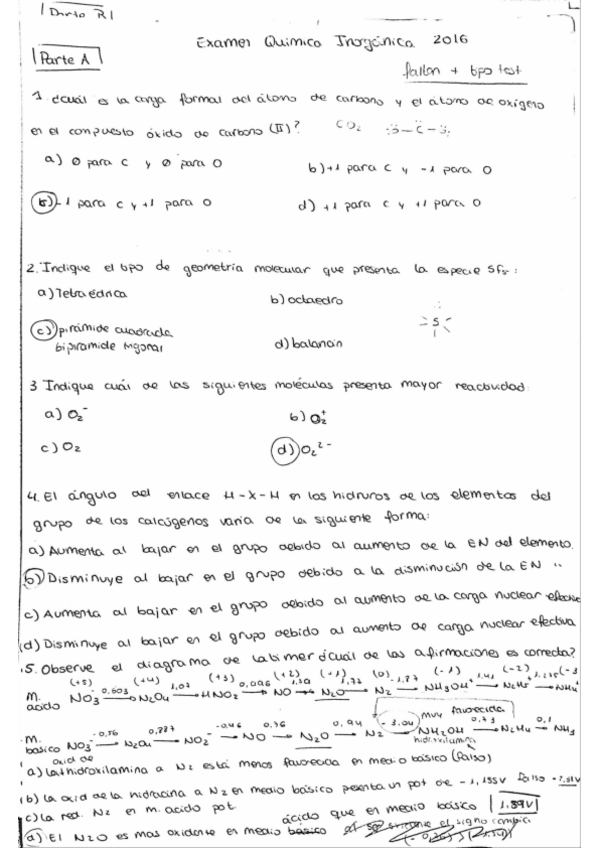 Dirto R
Examen Química Inorgánica 2016
Parte A
fallon + tipo test
1 ¿cuál es la carga formal del átomo de carbono y el átomo de oxígeno
en el compuesto óxido de carbono (II)? CO2
a) 0 para C y 0 para O
b) +1 para C y -1 para O
-1 para C y +1 para O
d) +1 para C y +1 para O
2. Indique el tipo de geometría molecular que presenta la especie SF5:
a) Tetraédrica
b) octaedro
c) pirámide cuadrada
bipiramide trigonal
d) balancín
3 Indique cuál de las siguientes moléculas presenta mayor reactividad:
a) O2-
b) O2+
c) O2
d) O2 2-
4. El ángulo del enlace H-X-H en los hidruros de los elementos del
grupo de los calcógenos varía de la siguiente forma:
a) Aumenta al bajar en el grupo debido al aumento de la EN del elemento.
b) Disminuye al bajar en el grupo debido a la disminución de la EN "
c) Aumenta al bajar en el grupo debido al aumento de la carga nuclear efectiva
(d) Disminuye al bajar en el grupo debido al aumento de carga nuclear efectiva
5. Observe el diagrama de Latimer ¿cuál de las afirmaciones es correcta?
(+5) (+4) (+3) (+2) (+1) (0) (-1) (-2) (-3
m. acido NO3- 0,803 N2O4 1,07 HNO2 NO N2O 1,77 N2 -1,87 NH3OH+ 1,41 N2H5+ 1,275 NH4+
muy favorecida
m. basico NO3- -0,86 N2O4 0,887 NO2- -0,46 NO 0,76 N2O 0,94 N2 -3,04 NH2OH 0,73 N2H4 0,1 NH3
hidroxilamina
oxid de
a) la hidroxilamina a N2 está menos favorecida en medio básico (falso)
(b) la oxid de la hidracina a N2 en medio básico presenta un pot de -1,155V falso
c) la red. N2 en m. acido pot. ácido que en medio básico 1.87V
d) El N2O es mas oxidente en medio básico el signo cambia